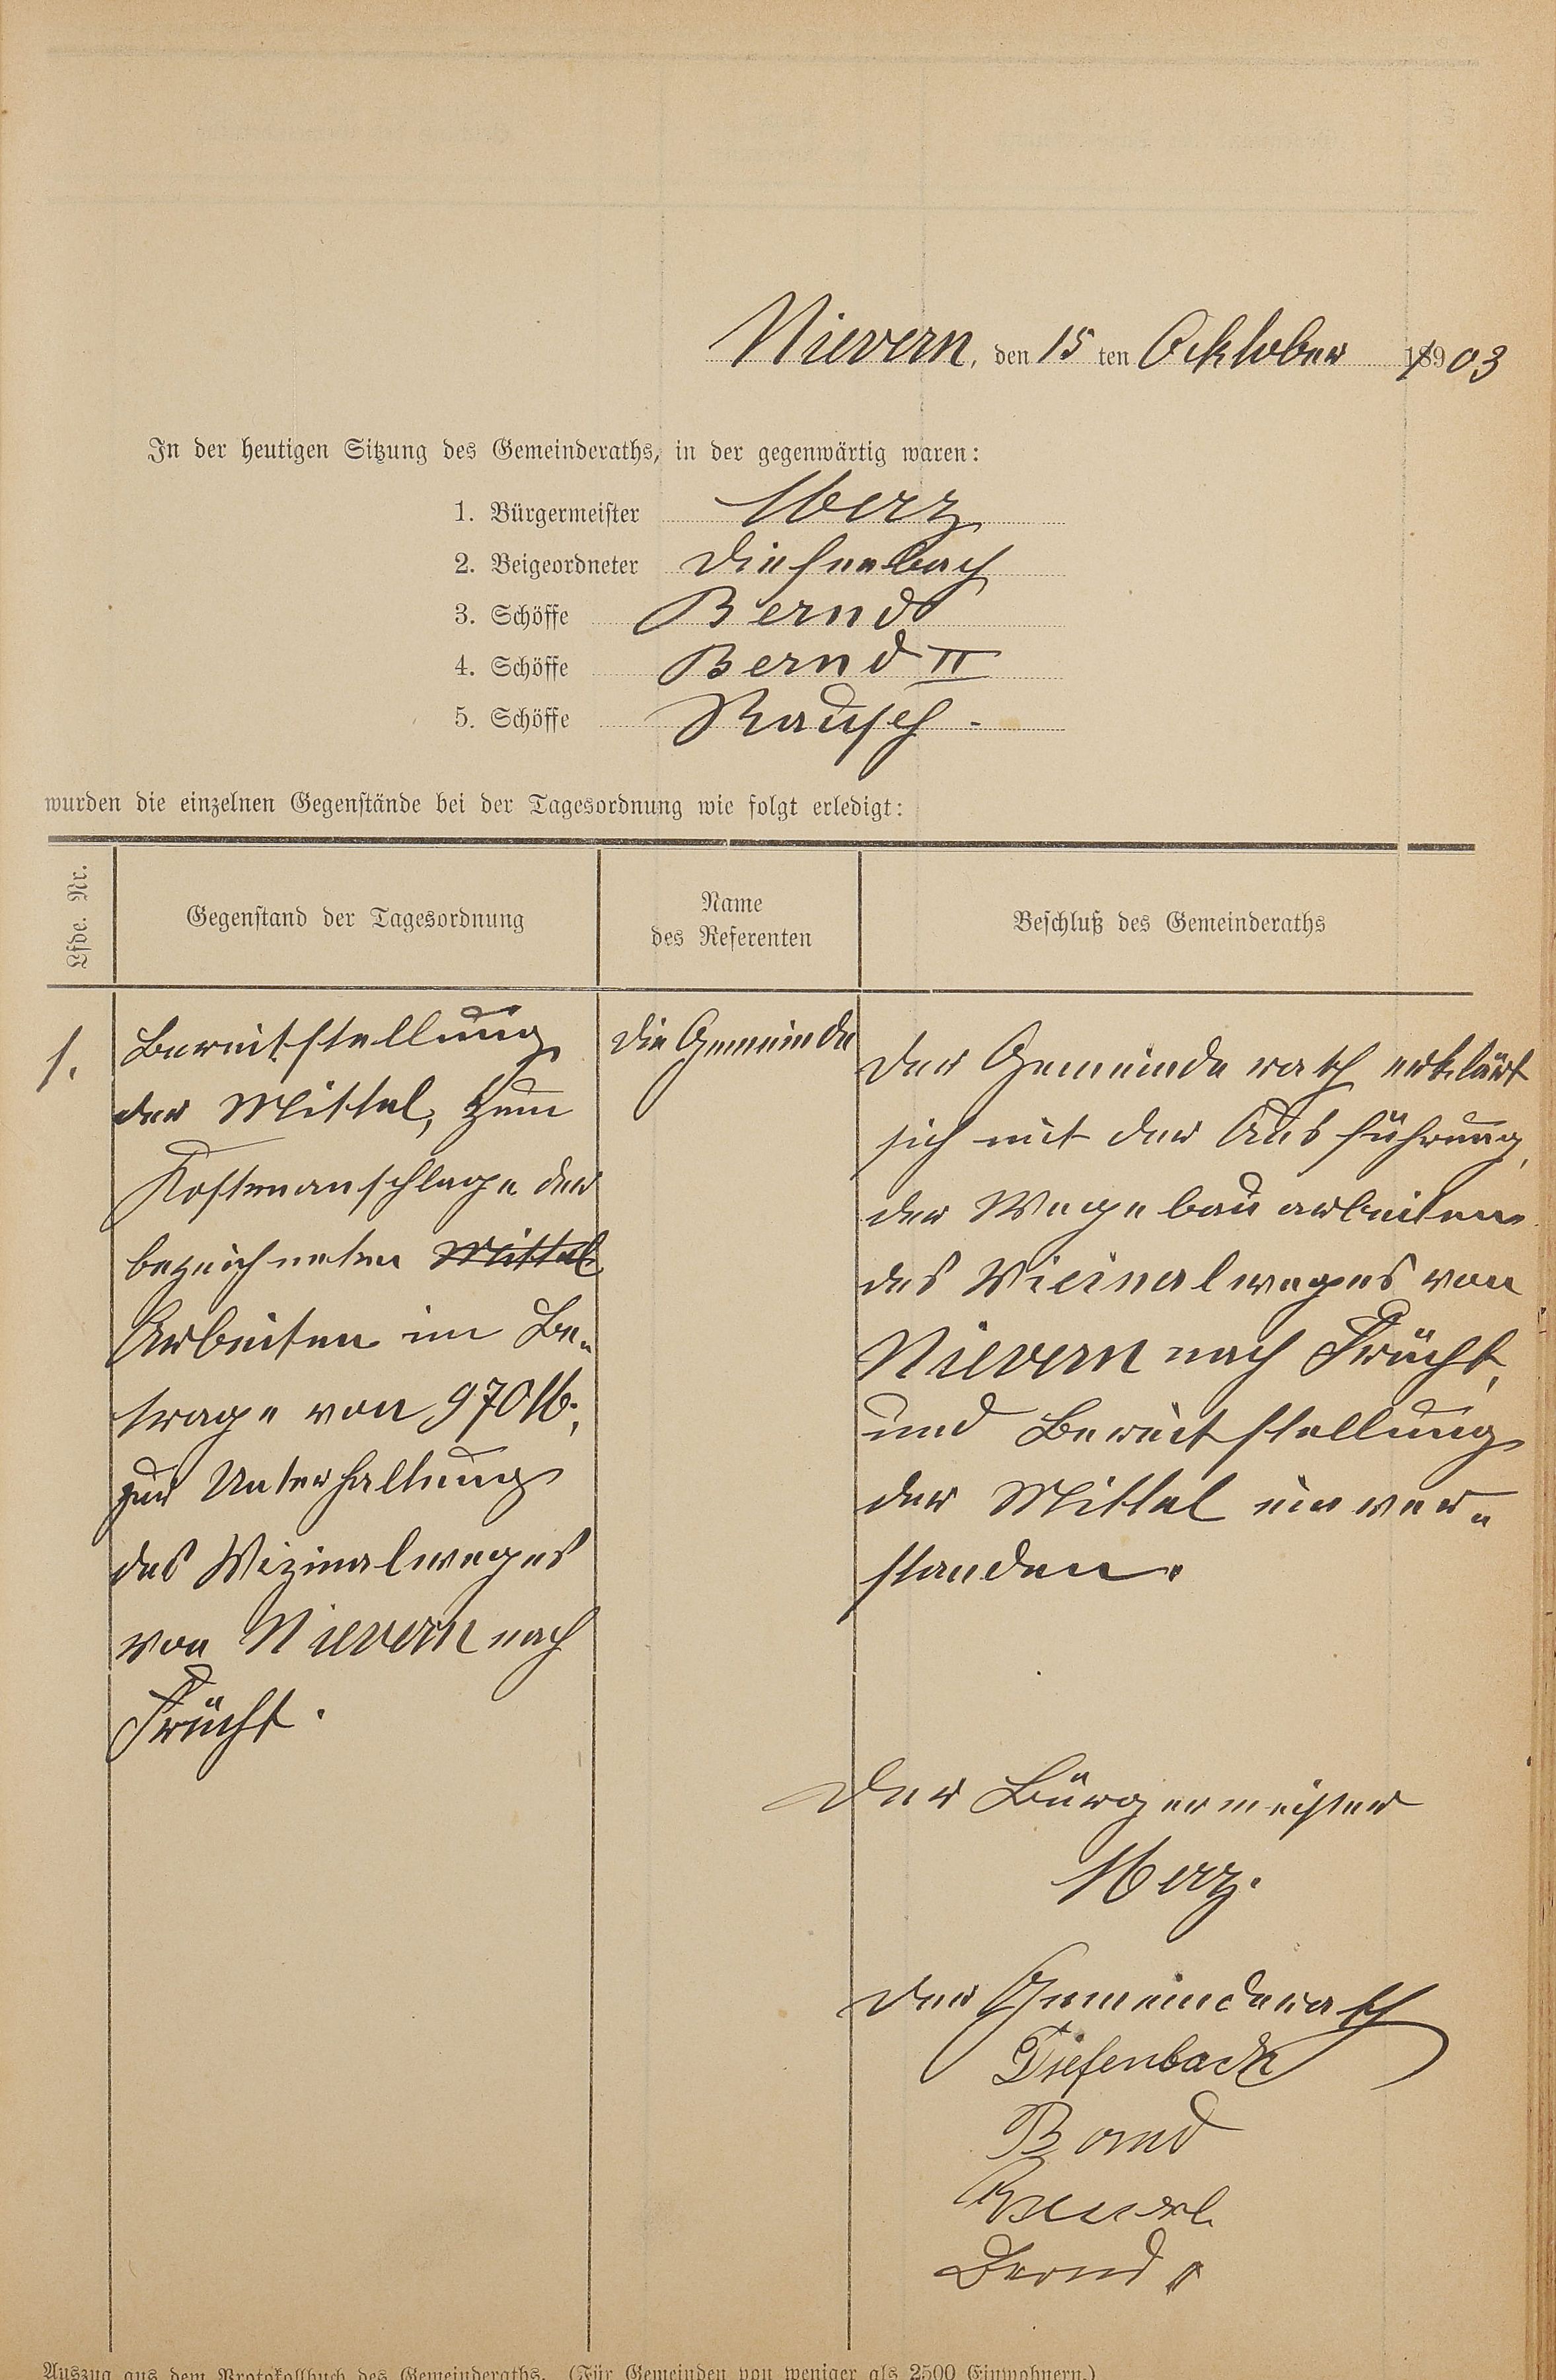 Nievern, den 15 ten Ocktober 1903
In der heutigen Sitzung des Gemeinderaths, in der gegenwärtig waren:
1. Bürgermeister Merz
2. Beigeordneter Diefenbach
3. Schöffe Bernd
4. Schöffe Bernd II
5. Schöffe Rausch.
wurden die einzelnen Gegenstände bei der Tagesordnung wie folgt erledigt:
Lfde. Nr.
Gegenstand der Tagesordnung
Name
des Referenten
Beschluß des Gemeinderaths
1.
Bereitstellung
der Mittel, zum
Kostenanschlage der
bezeichneten Mittel
Arbeiten im Be-
trage von 970 M.,
zur Unterhaltung
des Vizinalweges
von Nievern nach
Frücht.
Die Gemeinde
Der Gemeinderath erklärt
sich mit der Ausführung,
der Wegebauarbeiten
des Vicinalweges von
Nievern nach Frücht,
und Bereitstellung
der Mittel einver-
standen.
Der Bürgermeister
Merz.
Der Gemeinderath
Diefenbach
Bernd
Bernd
Auszug aus dem Protokollbuch des Gemeinderaths. (Für Gemeinden von weniger als 2500 Einwohnern.)